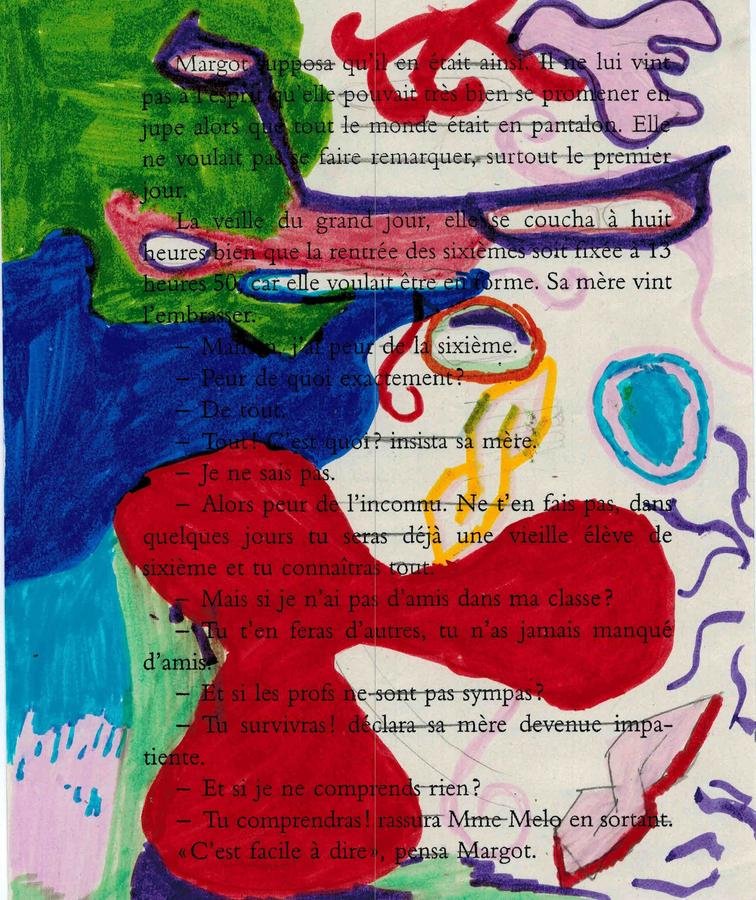 Margot supposa qu'il en était ainsi. Il ne lui vint
pas à l'esprit qu'elle pouvait très bien se promener en
jupe alors que tout le monde était en pantalon. Elle
ne voulait pas se faire remarquer, surtout le premier
jour.
La veille du grand jour, elle se coucha à huit
heures bien que la rentrée des sixièmes soit fixée à 13
heures 50, car elle voulait être en forme. Sa mère vint
l'embrasser.
– Maman, j'ai peur de la sixième.
– Peur de quoi exactement ?
– De tout.
– Tout ! C'est quoi ? insista sa mère.
– Je ne sais pas.
– Alors peur de l'inconnu. Ne t'en fais pas, dans
quelques jours tu seras déjà une vieille élève de
sixième et tu connaîtras tout.
– Mais si je n'ai pas d'amis dans ma classe ?
– Tu t'en feras d'autres, tu n'as jamais manqué
d'amis.
– Et si les profs ne sont pas sympas ?
– Tu survivras ! déclara sa mère devenue impa-
tiente.
– Et si je ne comprends rien ?
– Tu comprendras ! rassura Mme Melo en sortant.
« C'est facile à dire », pensa Margot.